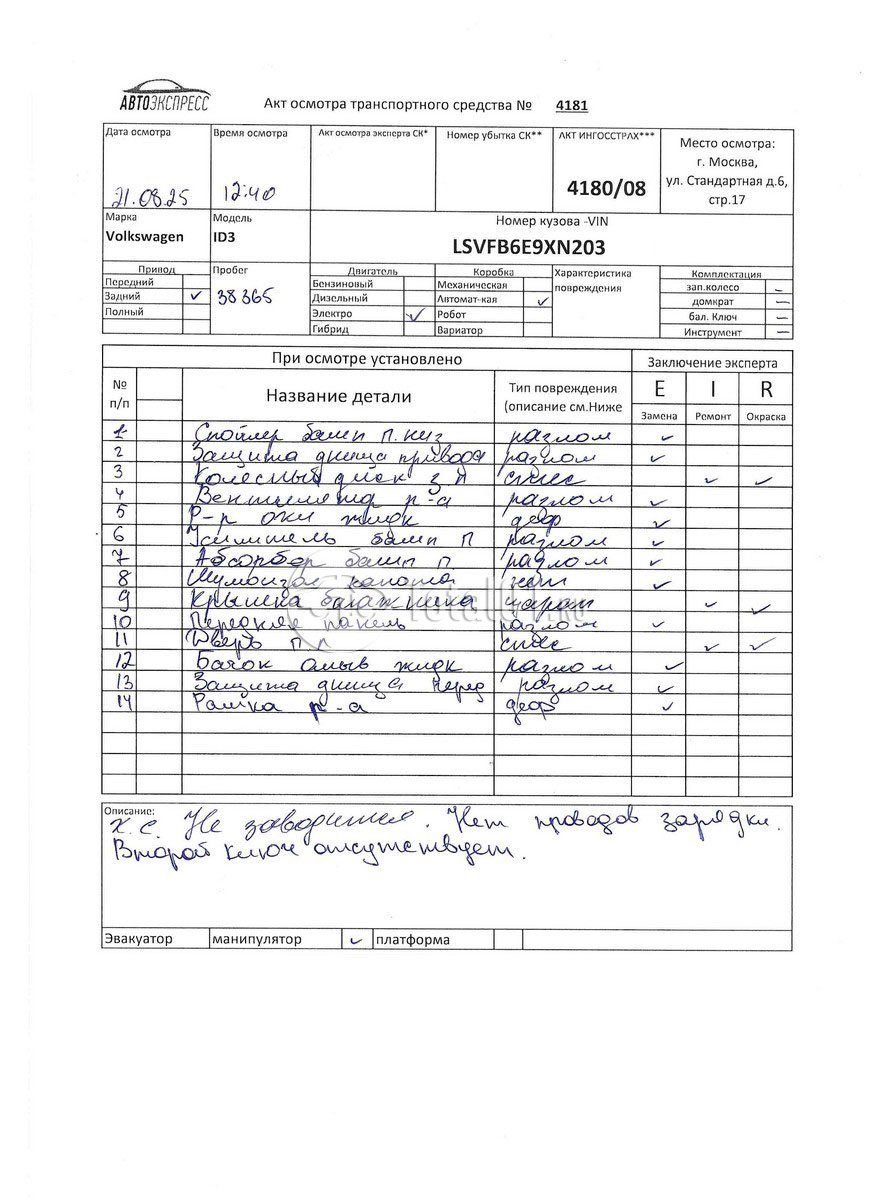 АВТОЭКСПРЕСС
Акт осмотра транспортного средства № 4181
Дата осмотра Время осмотра Акт осмотра эксперта СК* Номер убытка СК** АКТ ИНГОССТРАХ*** Место осмотра:
г. Москва,
21.08.25 12:40 4180/08 ул. Стандартная д.6,
стр.17
Марка Модель Номер кузова -VIN
Volkswagen ID3 LSVFB6E9XN203
Привод Пробег Двигатель Коробка Характеристика Комплектация
Передний Бензиновый Механическая повреждения зап.колесо –
Задний ✓ 38365 Дизельный Автомат-кая ✓ домкрат –
Полный Электро ✓ Робот бал. Ключ –
Гибрид Вариатор Инструмент –
При осмотре установлено Заключение эксперта
№ п/п Название детали Тип повреждения (описание см.Ниже E I R
Замена Ремонт Окраска
1 Спойлер бамп п. низ разлом ✓
2 Защита днища привода разлом ✓
3 Колесный диск з п спис ✓ ✓
4 Вентилятор р-а разлом ✓
5 Р-р охл жидк деф ✓
6 Усилитель бамп п разлом ✓
7 Абсорбер бамп п разлом ✓
8 Шумоизол капота ✓
9 Крышка багажника царап ✓ ✓
10 Передняя панель разлом ✓
11 Дверь п.л спис ✓ ✓
12 Бачок омыв жидк разлом ✓
13 Защита днища перед разлом ✓
14 Рамка р-а деф ✓
Total01.ru
Описание:
Х.С. Не заводится. Нет проводов зарядки.
Второй ключ отсутствует.
Эвакуатор манипулятор ✓ платформа